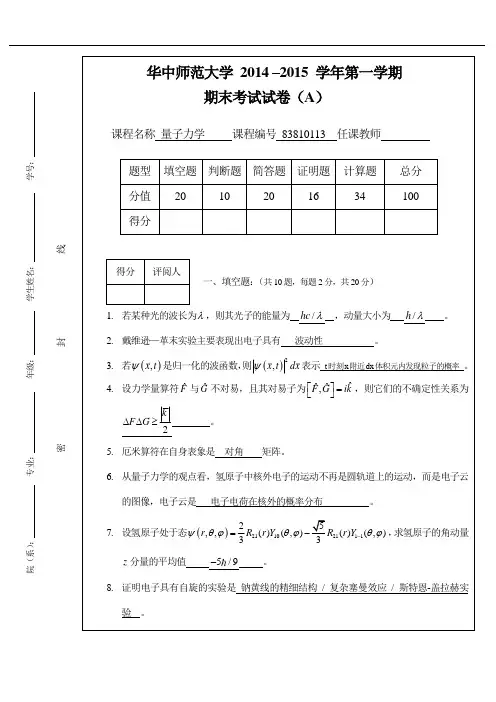 华中师范大学 2014 –2015 学年第一学期
期末考试试卷（A）
课程名称 量子力学 课程编号 83810113 任课教师
题型 填空题 判断题 简答题 证明题 计算题 总分
分值 20 10 20 16 34 100
得分
得分 评阅人
一、填空题:（共10题，每题2分，共20分）
1. 若某种光的波长为λ，则其光子的能量为 hc/λ ，动量大小为 h/λ 。
2. 戴维逊—革末实验主要表现出电子具有 波动性 。
3. 若ψ(x,t)是归一化的波函数,则|ψ(x,t)|²dx表示 t时刻x附近dx体积元内发现粒子的概率 。
4. 设力学量算符F̂与Ĝ不对易，且其对易子为[F̂,Ĝ]=ik̂，则它们的不确定性关系为
ΔFΔG≥k̄/2 。
5. 厄米算符在自身表象是 对角 矩阵。
6. 从量子力学的观点看，氢原子中核外电子的运动不再是圆轨道上的运动，而是电子云
的图像，电子云是 电子电荷在核外的概率分布 。
7. 设氢原子处于态ψ(r,θ,φ)=2/3R₂₁(r)Y₁₀(θ,φ)−√5/3R₂₁(r)Y₁₋₁(θ,φ),求氢原子的角动量
z分量的平均值 −5ħ/9 。
8. 证明电子具有自旋的实验是 钠黄线的精细结构 / 复杂塞曼效应 / 斯特恩-盖拉赫实
验 。
院（系）: 专业: 年级: 学生姓名: 学号:
密 封 线